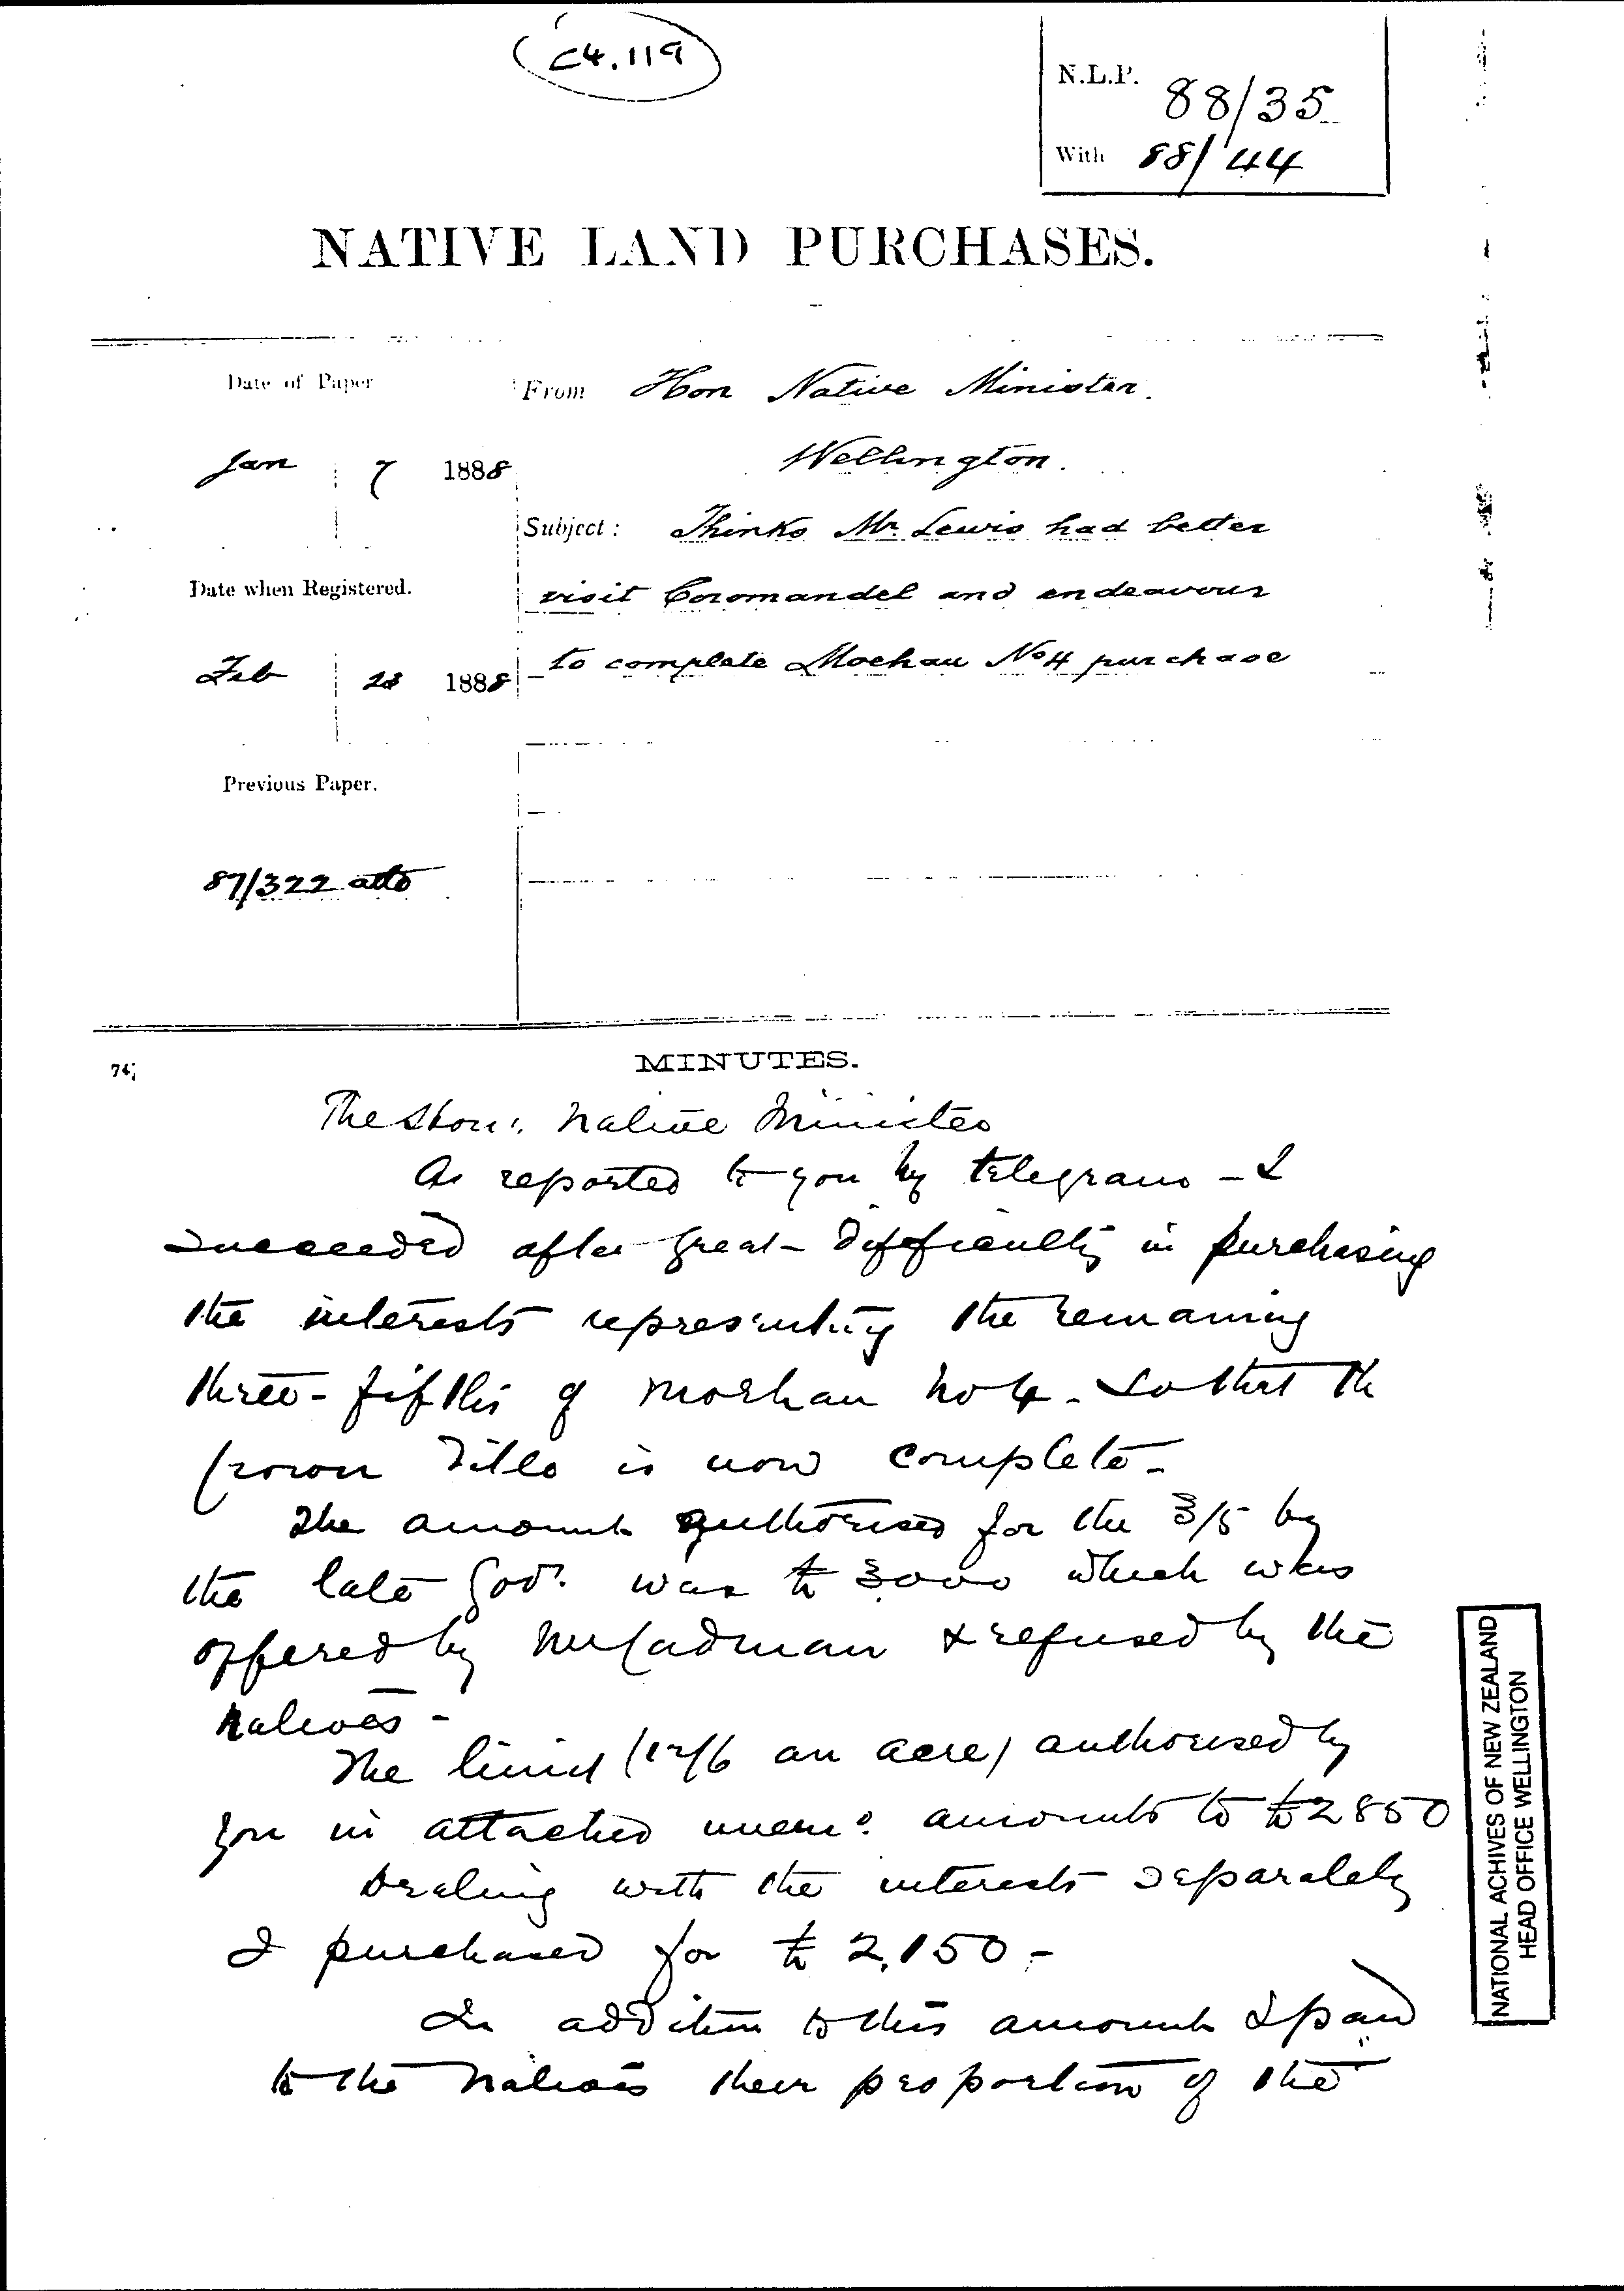 C4.119
N.L.P. 88/35
With 88/44
NATIVE LAND PURCHASES.
Date of Paper
From Hon Native Minister.
Jan 7 1888
Wellington.
Subject: Thinks Mr. Lewis had better
Date when Registered.
visit Coromandel and endeavour
Feb 23 1888
to complete Moehau No 4 purchase
Previous Paper.
87/322 attd
74
MINUTES.
The Hon: Native Minister
As reported to you by telegram - I
succeeded after great difficulty in purchasing
the interests representing the remaining
three-fifths of Moehau No 4 - so that the
Crown Title is now complete -
The amount authorised for the 3/5 by
the late Govt. was £3000 which was
offered by Mr Cadman & refused by the
Natives -
The limit (12/6 an acre) authorised by
you in attached memo. amounts to £2850
Dealing with the interests separately
I purchased for £2,150 -
In addition to this amount I paid
to the Natives their proportion of the
NATIONAL ACHIVES OF NEW ZEALAND
HEAD OFFICE WELLINGTON